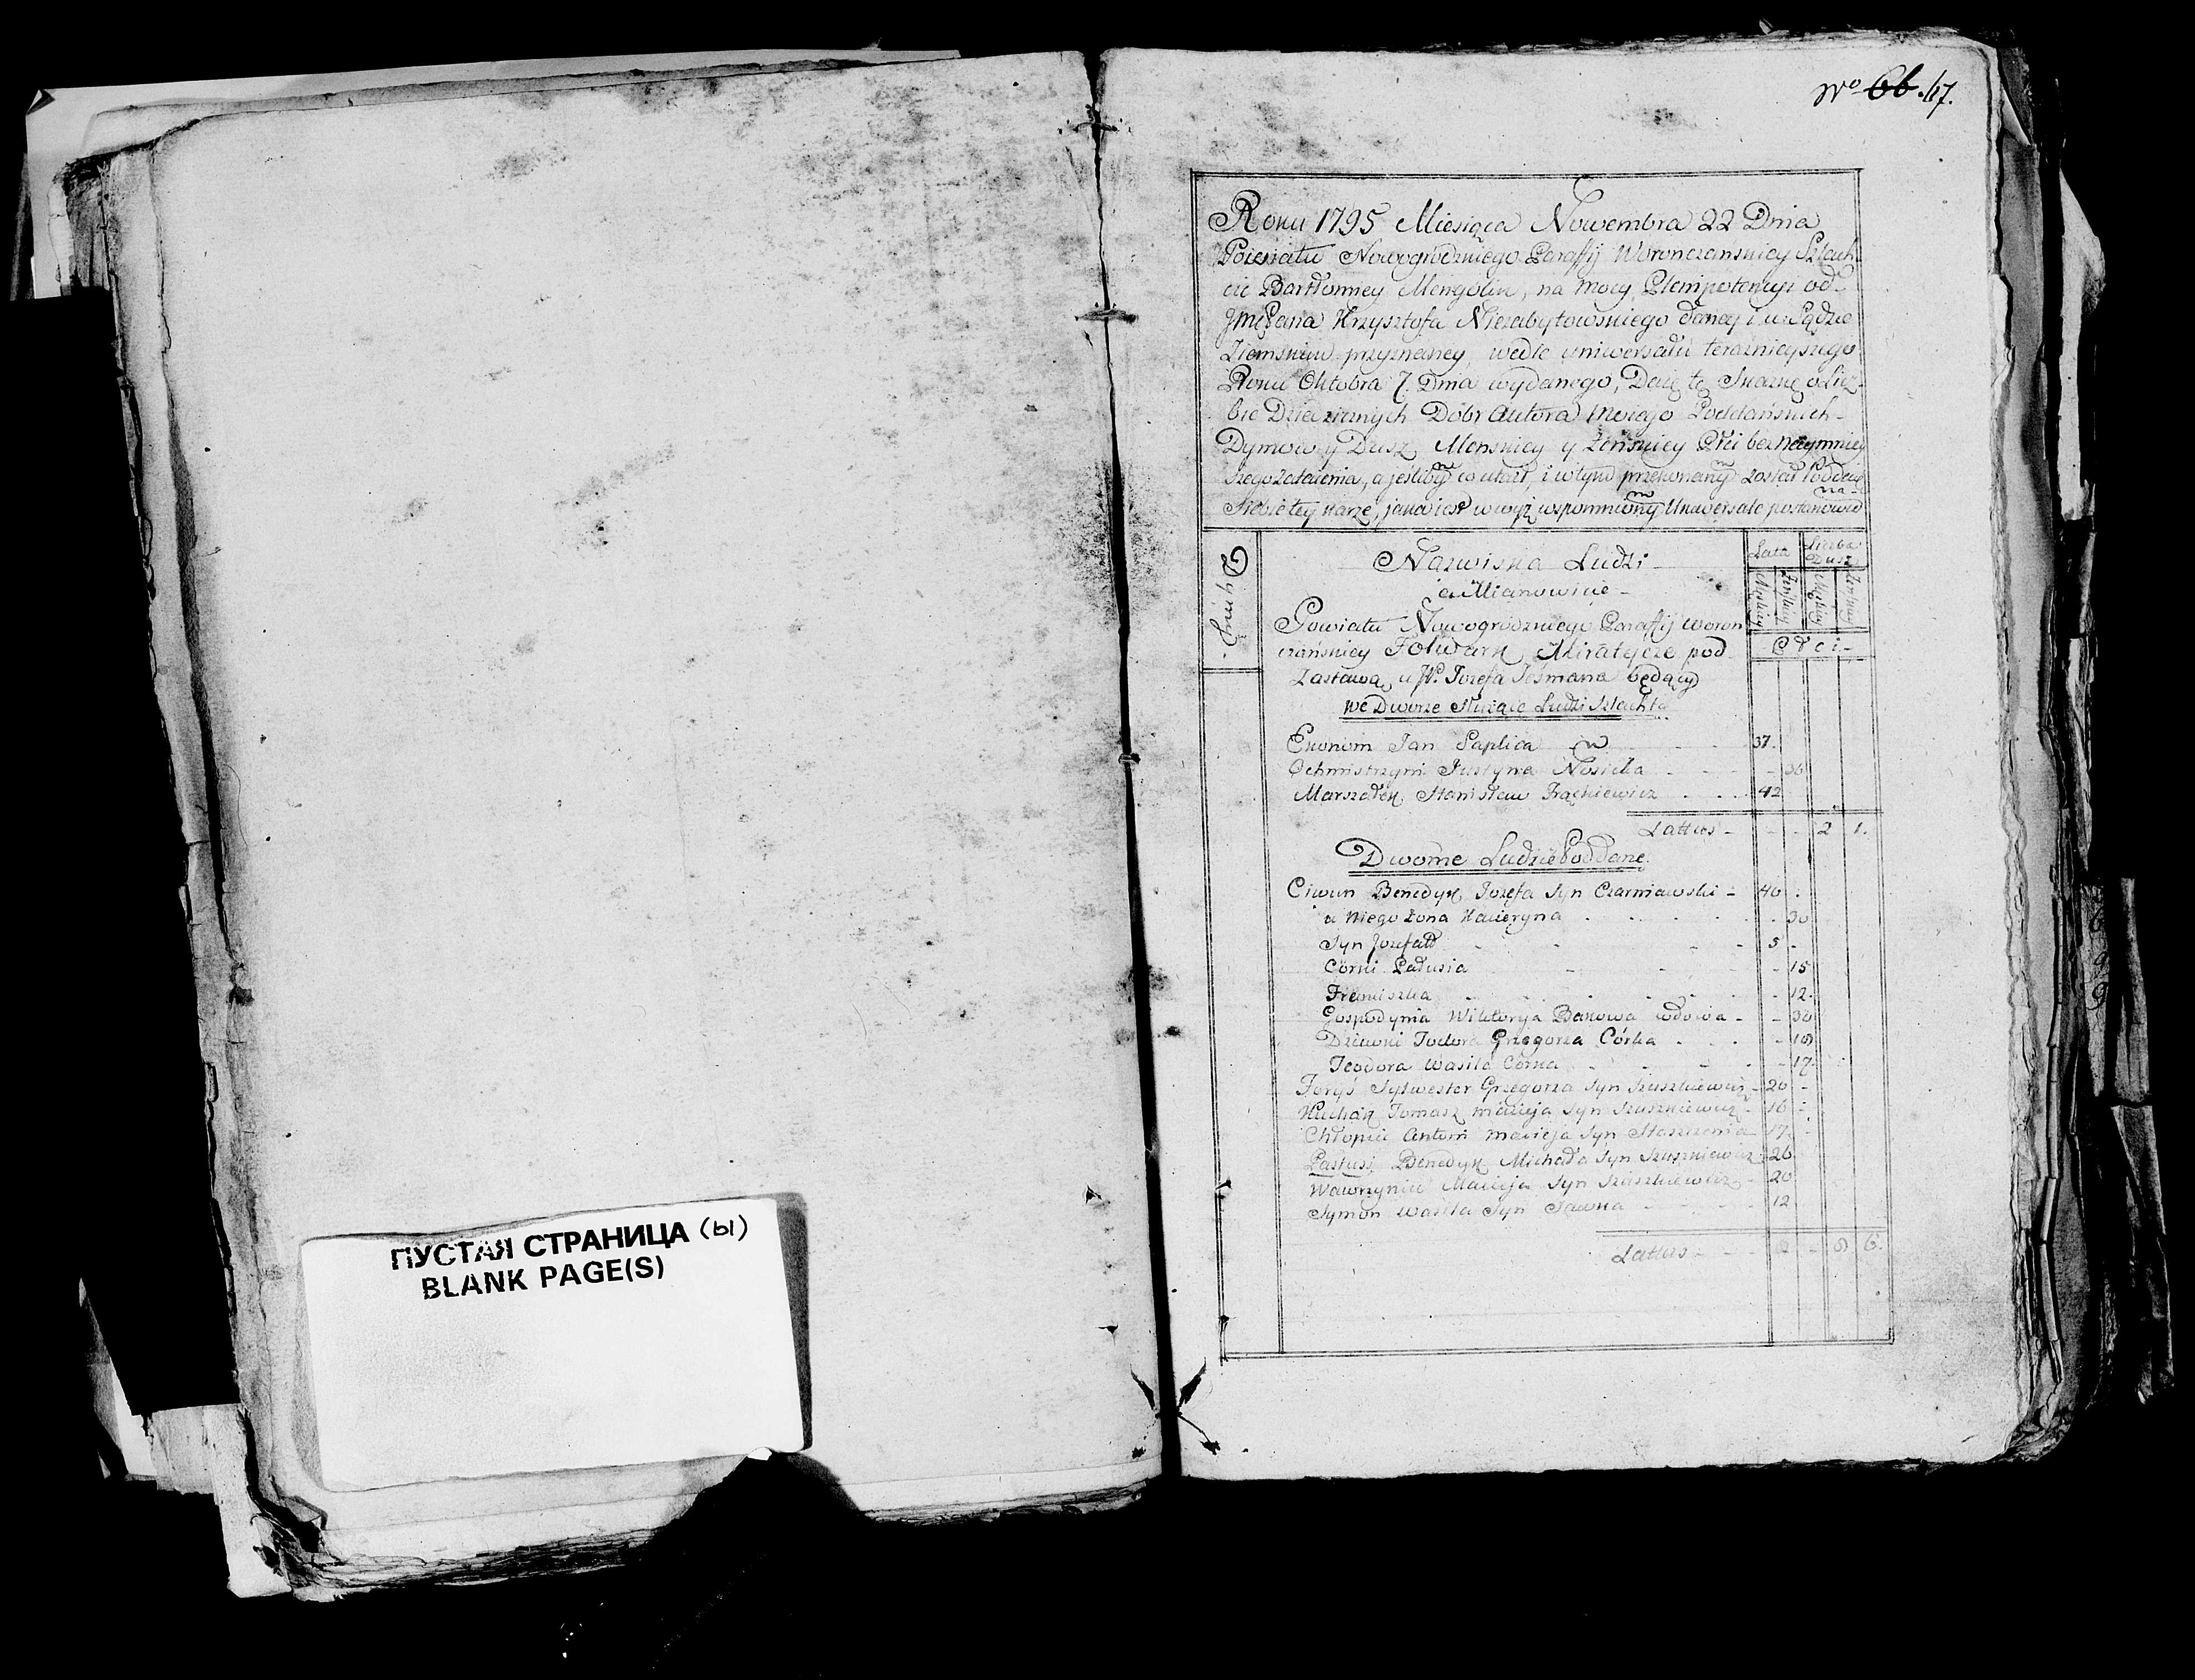 No 66. 67.
Roku 1795 Miesiąca Nowembra 22 Dnia
Powiatu Nowogrodzkiego Parafij Woronczanskiey Szlach-
cic Bartłomiey Mengolin, na mocy Plenipotencyi od
Jmć Pana Krzysztofa Niezabytowskiego daney i w Sądzie
Ziemskim przyznaney, wedle uniwersału teraznieyszego
Roku Oktobra 7. Dnia wydanego, Daię tę Skazkę o Licz-
bie Dziedzicznych Dobr Autora Mojego Poddańskich
Dymow y Dusz Męnskiey y Żenskiey Płci bez naymniey
szego Zatajenia, a jeśliby co utaił, i w tym przekonany został Poddaię
siebie tey karze, jaka iest w wyż wspomnionym Uniwersale postanowio
na
Dymy
Nazwiska Ludzi
a Mianowicie
Lata
Liczba Dusz
Męskiey
Żeńskiey
Męskiey
Żeńskiey
Płci
Powiatu Nowogrodzkiego Parafij Woron
czańskiey Folwark Miratycze pod
Zastawą u JP. Jozefa Jesmana będący
We Dworze Służące Ludzi Szlachta
Ekonom Jan Saplica 37.
Ochmistrzyni Justyna Nosicka 36
Marszałek Stanisław Frąckiewicz 42
Lattus 2 1.
Dworne Ludzie Poddane
Ciwun Benedyk Jozefa Syn Czarniawski 40
u Niego żona Kacieryna 30
Syn Jozefatt 5
Corki Padusia 15
Franciszka 12.
Gospodynia Wiktorya Bakowa wdowa 30
Dziewki Todora Grzegorza Córka 18
Teodora Wasila Corka 17
Foryś Sylwester Grzegorza Syn Szuszkiewicz 20
Kucharz Tomasz Macieja Syn Szuszkiewicz 16
Chłopiec Antoni Macieja Syn 17.
Pastusi Benedyk Michała Syn Szuszkiewicz 26
Wawrzyniec Macieja Syn Szuszkiewicz 20
Symon Wasila Syn Sawka 12
Lattus 8 6.
ПУСТАЯ СТРАНИЦА (Ы)
BLANK PAGE(S)